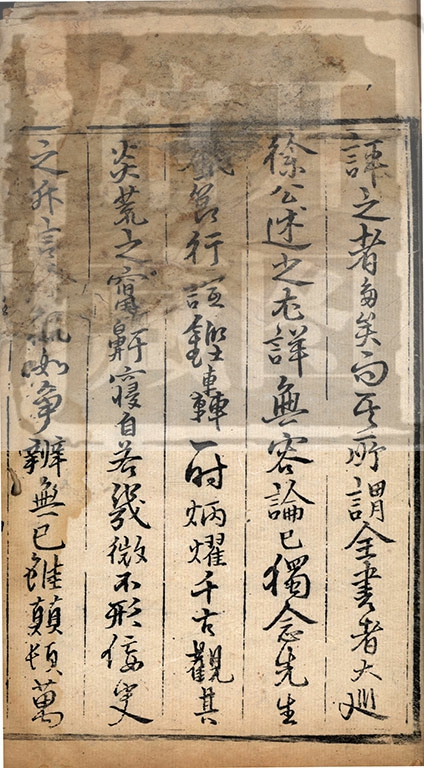 評之者多矣而其所謂全書者大巡
徐公述之尤詳無容論已獨念先生
氣節行誼鏗轟一時炳燿千古觀其
炎荒之竄鼾寢自若幾微不形佞叟
之升言氣如爭辨無已雖顛頓萬